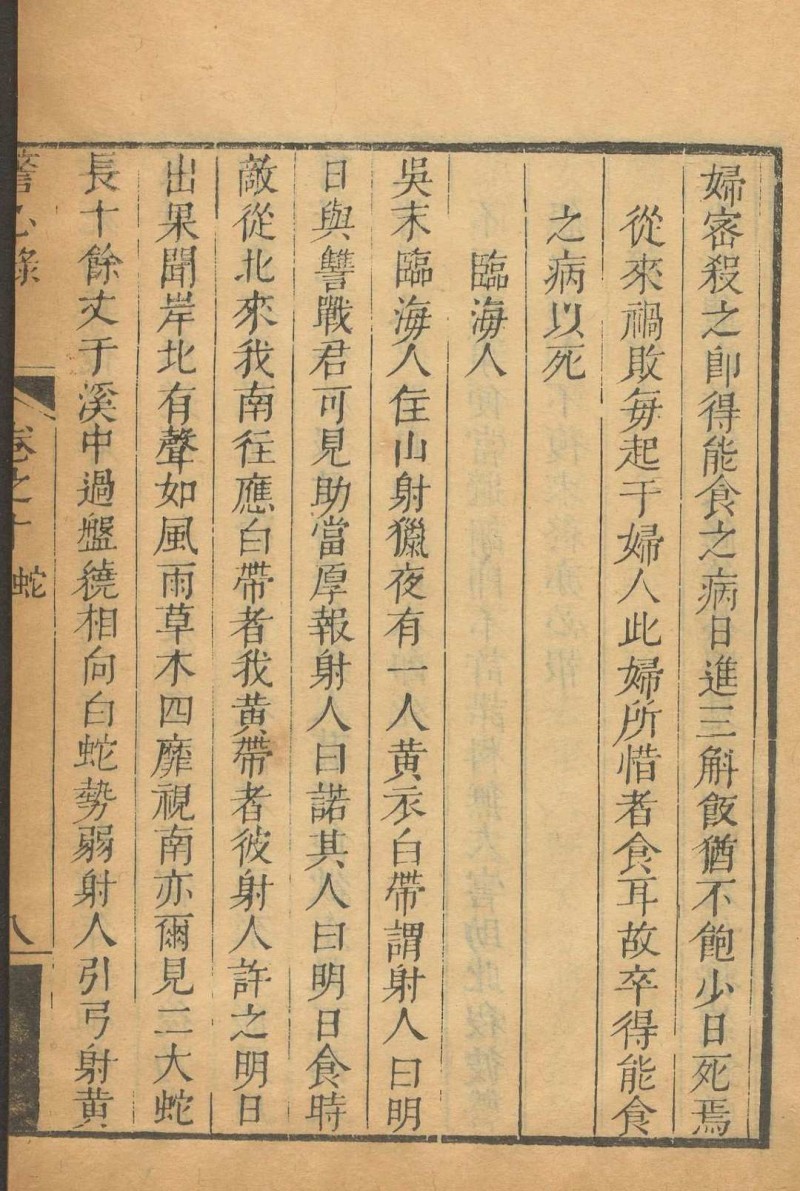 婦密殺之卽得能食之病日進三斛飯猶不飽少日死焉
從來禍敗每起于婦人此婦所惜者食耳故卒得能食
之病以死
臨海人
吳末臨海人住山射獵夜有一人黃衣白帶謂射人曰明
日與讐戰君可見助當厚報射人曰諾其人曰明日食時
敵從北來我南往應白帶者我黃帶者彼射人許之明日
出果聞岸北有聲如風雨草木四靡視南亦爾見二大蛇
長十餘丈于溪中過盤繞相向白蛇勢弱射人引弓射黃
卷之十 蛇
八